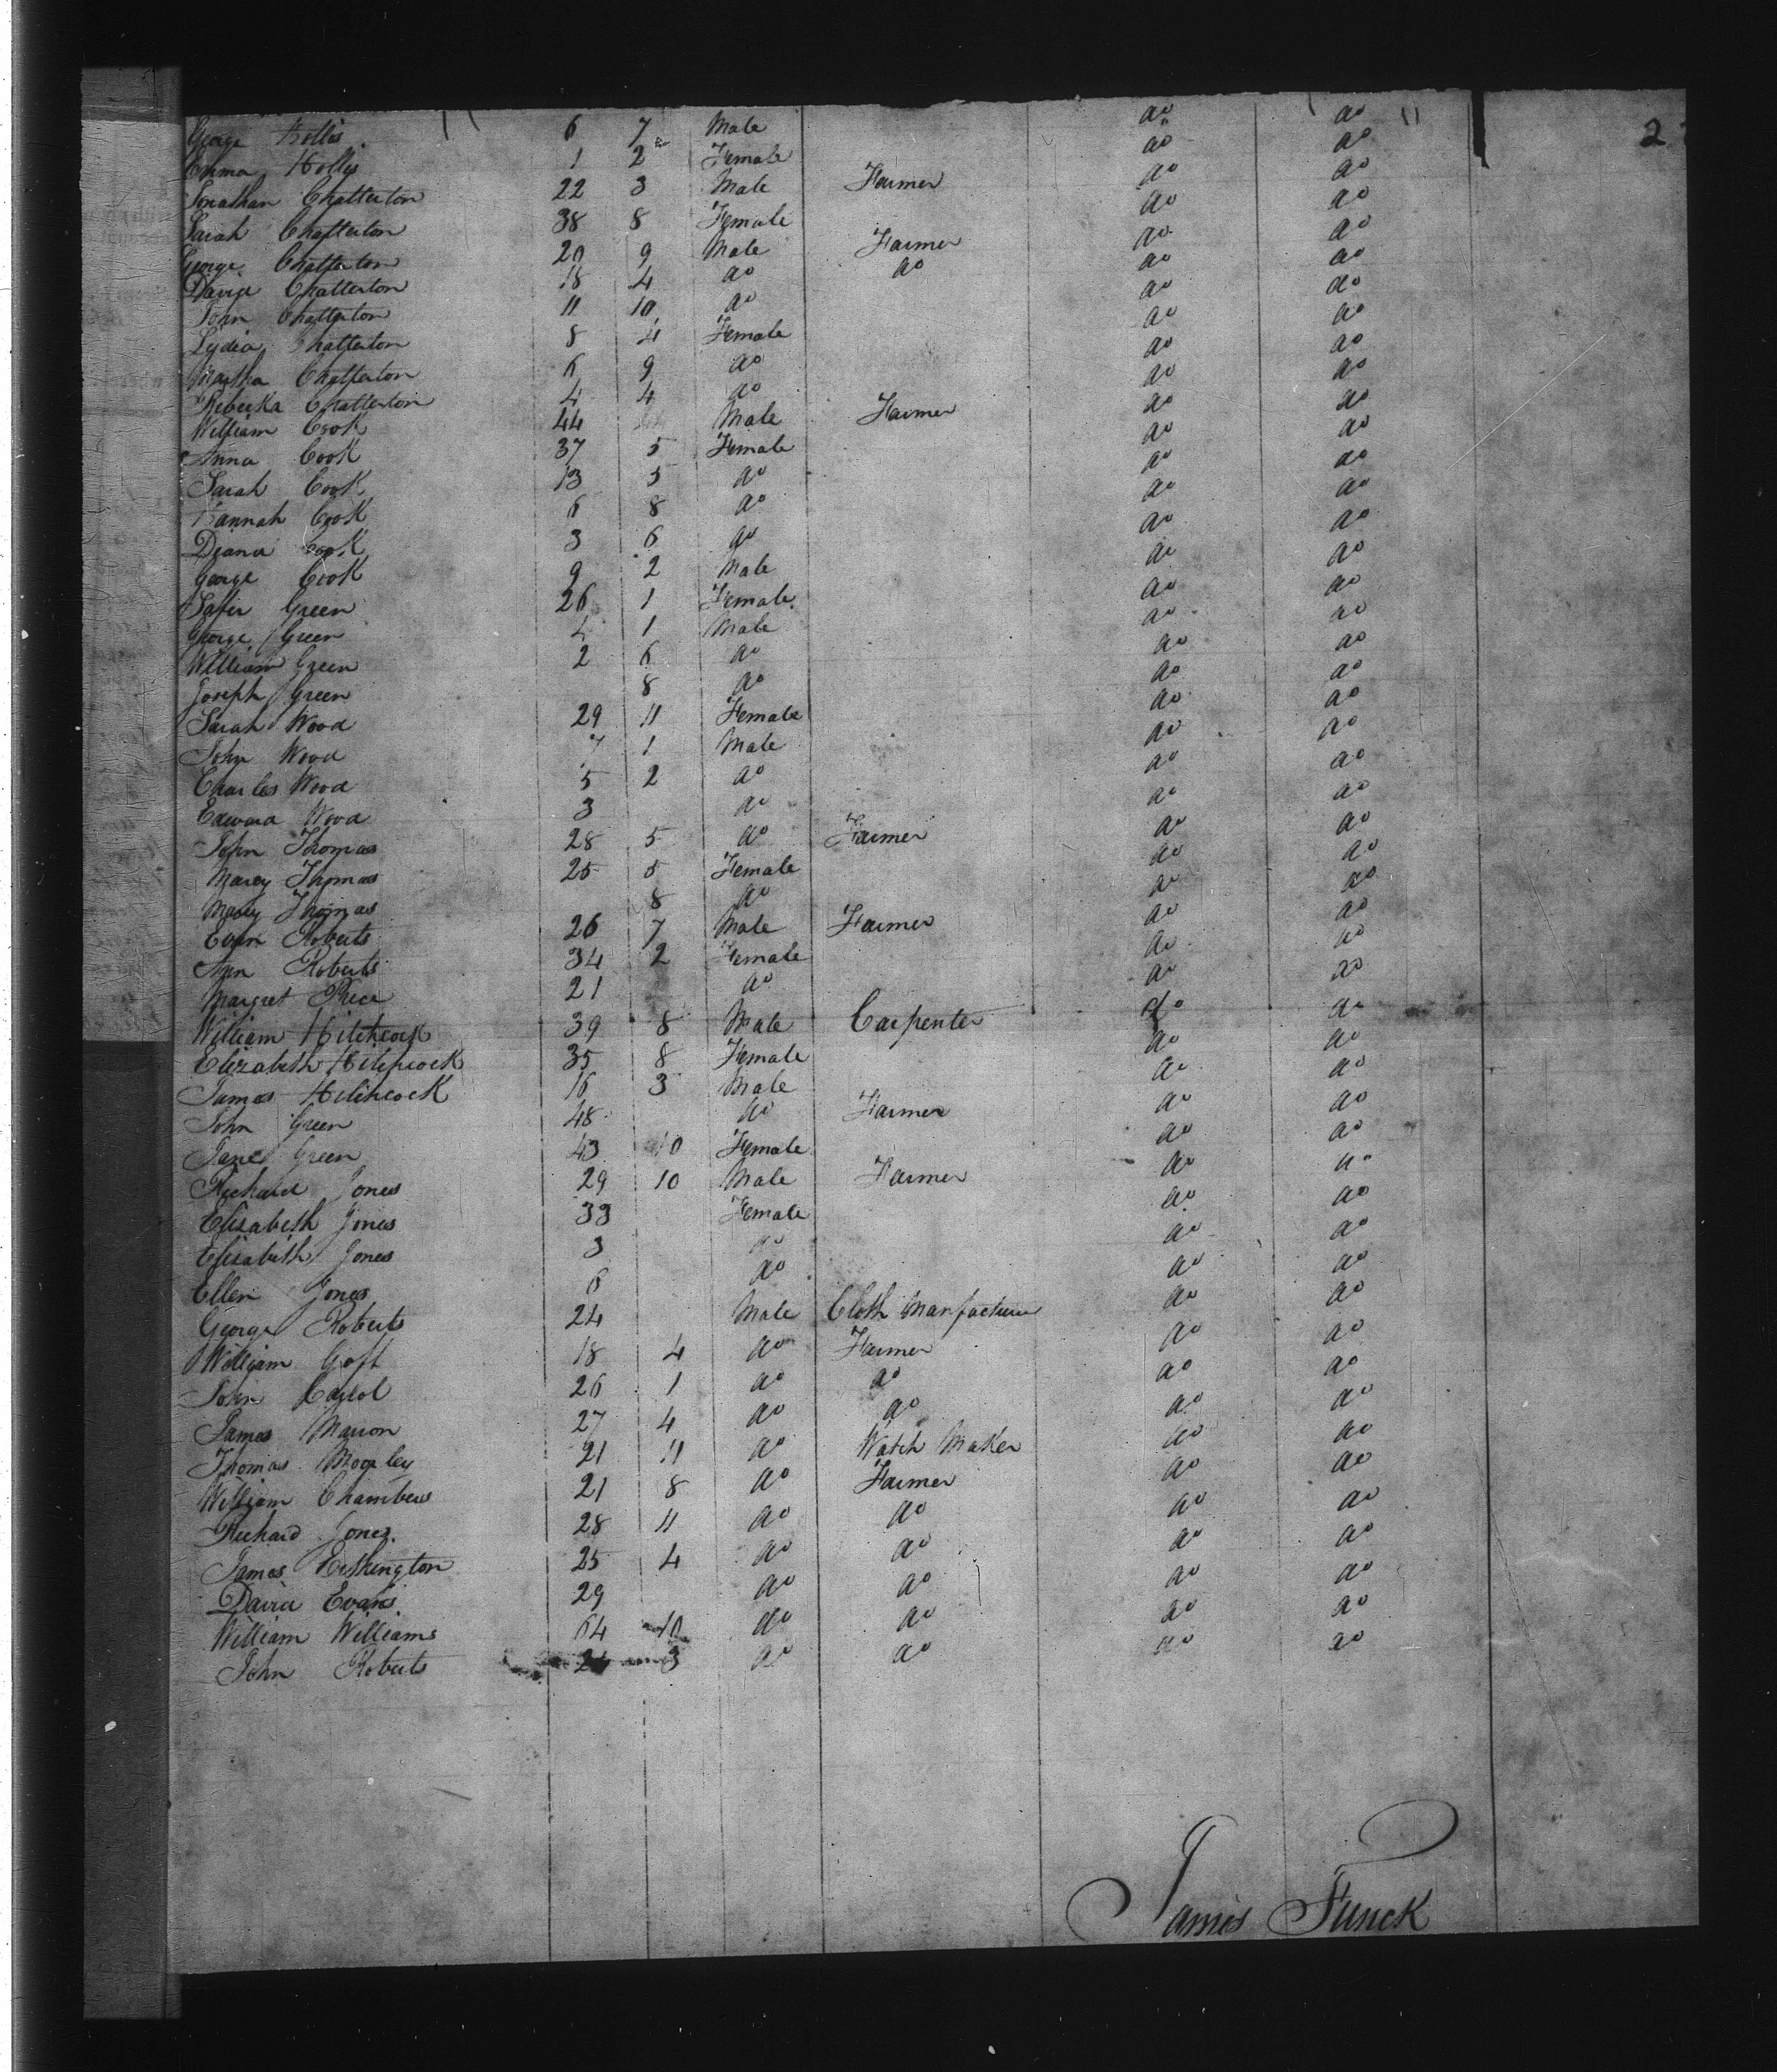 2
George Hollis 6 7 Male do do
Emma Hollis 1 2 Female do do
Jonathan Chatterton 22 3 Male Farmer do do
Sarah Chatterton 38 8 Female do do
George Chatterton 20 9 Male Farmer do do
David Chatterton 18 4 do do do do
John Chatterton 11 10 do do do
Lydia Chatterton 8 4 Female do do
Martha Chatterton 6 9 do do do
Rebecka Chatterton 4 4 do do do
William Cook 44 Male Farmer do do
Anna Cook 37 5 Female do do
Sarah Cook 13 5 do do do
Hannah Cook 6 8 do do do
Diana Cook 3 6 do do do
George Cook 9 2 Male do do
Green 26 1 Female do do
George Green 4 1 Male do do
William Green 2 6 do do do
Joseph Green 8 do do do
Sarah Wood 29 11 Female do do
John Wood 7 1 Male do do
Charles Wood 5 2 do do do
Edward Wood 3 do do do
John Thomas 28 5 do Farmer do do
Marey Thomas 25 5 Female do do
Marey Thomas 8 do do do
Evan Roberts 26 7 Male Farmer do do
Ann Roberts 34 2 Female do do
Margret Price 21 do do do
William Hitchcock 39 8 Male Carpenter do do
Elizabeth Hitchcock 35 8 Female do do
James Hitchcock 16 3 Male do do
John Green 48 do Farmer do do
Jane Green 43 10 Female do do
Richard Jones 29 10 Male Farmer do do
Elizabeth Jones 33 Female do do
Elizabeth Jones 3 do do do
Ellen Jones 6 do do do
George Roberts 24 Male Cloth Manfacturer do do
William Goft 18 4 do Farmer do do
John Carrol 26 1 do do do do
James Marion 27 4 do do do do
Thomas 21 11 do Watch Maker do do
William Chambers 21 8 do Farmer do do
Richard Jones 28 11 do do do do
James 25 4 do do do do
David Evans 29 do do do do
William Williams 64 10 do do do do
John Roberts 24 3 do do do do
James Funck